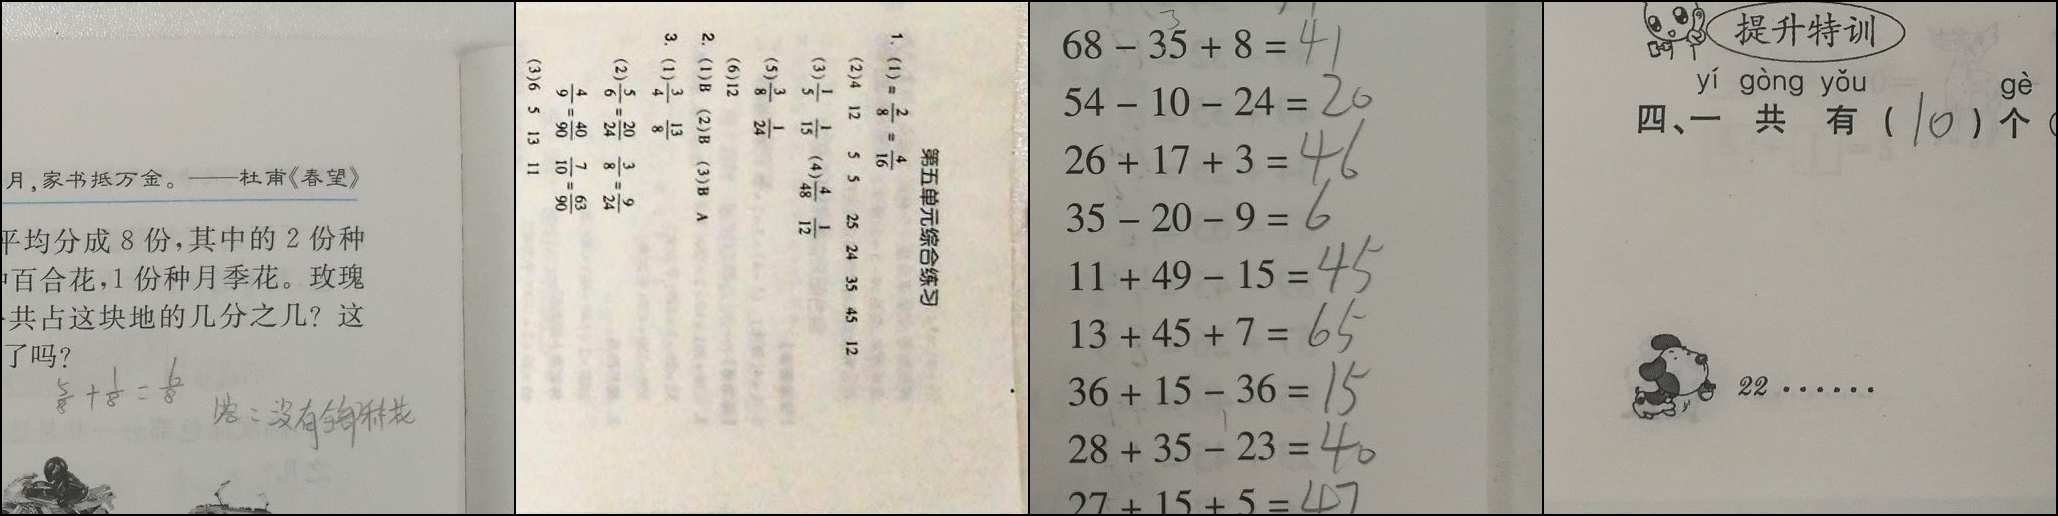 月,家书抵万金。——杜甫《春望》
平均分成 8 份,其中的 2 份种
百合花,1 份种月季花。玫瑰
共占这块地的几分之几? 这
了吗?
5/8 + 1/8 = 6/8
答:没有全部种花
第五单元综合练习
1. (1) = 2/8 = 4/16
(2)4 12 5 5 25 24 35 45 12
(3) 1/5 1/15 (4) 4/48 1/12
(5) 3/8 1/24
(6)12
2. (1)B (2)B (3)B A
3. (1) 3/4 13/8
(2) 5/6 = 20/24 3/8 = 9/24
4/9 = 40/90 7/10 = 63/90
(3)6 5 13 11
68 − 35 + 8 = 41
54 − 10 − 24 = 20
26 + 17 + 3 = 46
35 − 20 − 9 = 6
11 + 49 − 15 = 45
13 + 45 + 7 = 65
36 + 15 − 36 = 15
28 + 35 − 23 = 40
27 + 15 + 5 = 47
提升特训
yí gòng yǒu gè
四、一 共 有 ( 10 ) 个
22 ······